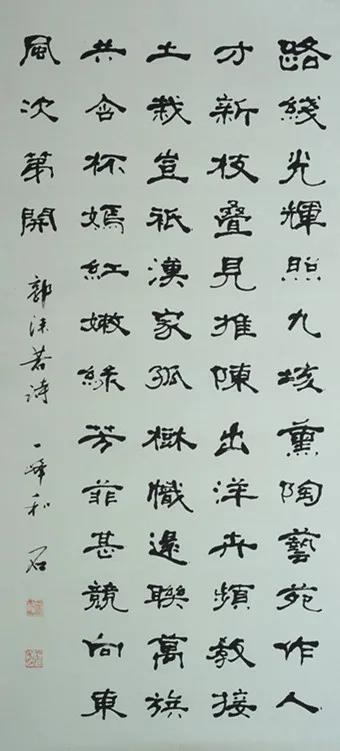 路綫光輝照九垓薰陶藝苑作人
才新枝叠見推陳出洋卉頻教接
土栽豈祇漢家孤樹幟還聯萬族
共含杯嫣紅嫩綠芳菲甚競向東
風次第開 郭沫若詩 一峰和石